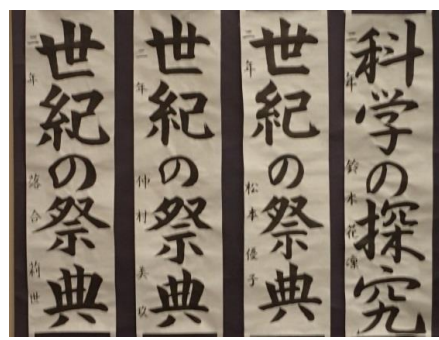 科学の探究
二年 鈴木花凜
世紀の祭典
二年 松本優子
世紀の祭典
二年 仲村美玖
世紀の祭典
二年 落合莉世